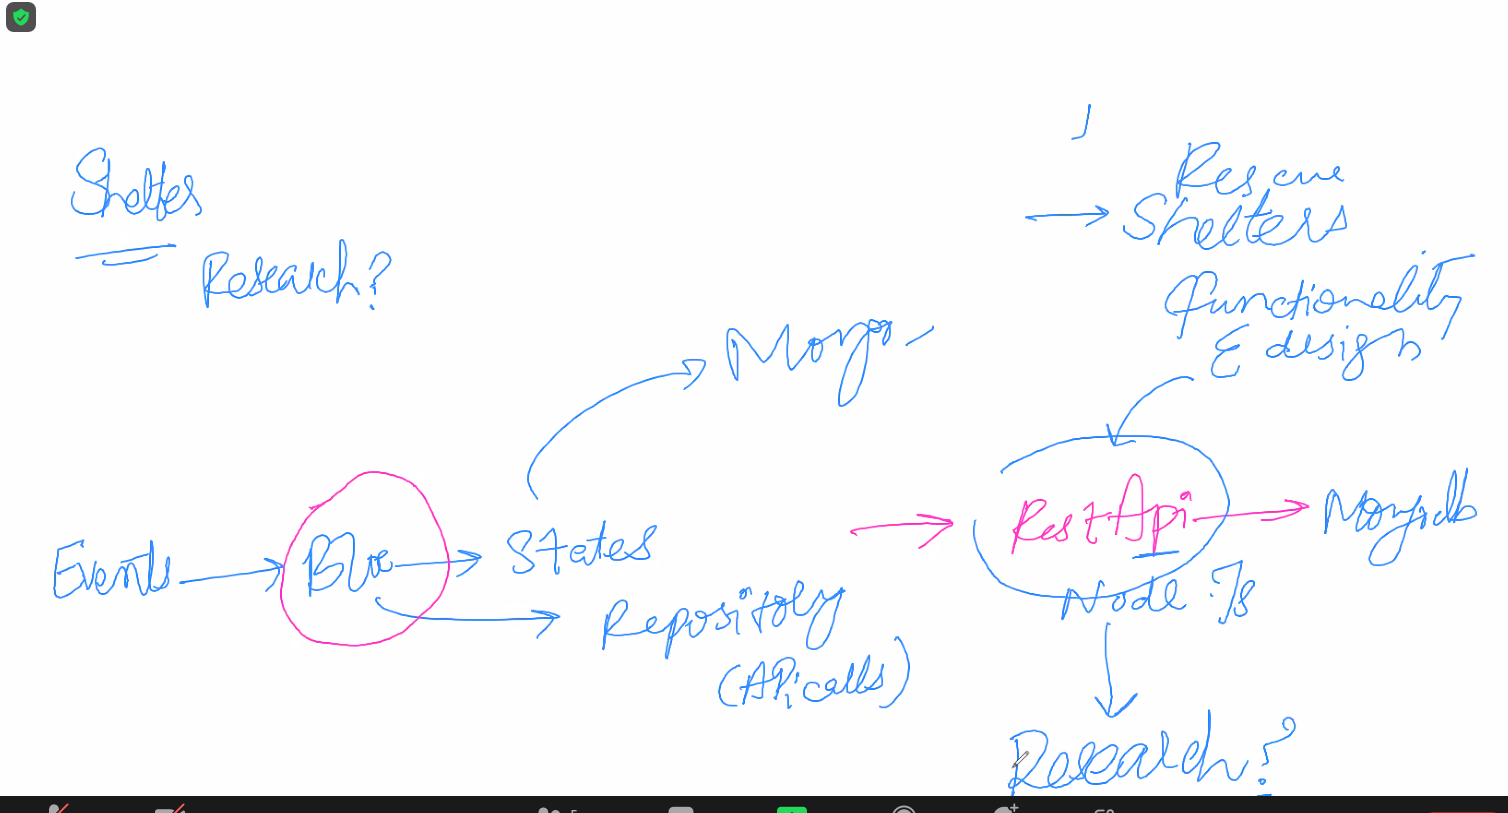 Shelter
Research?
Rescue
Shelters
functionality
& design
Mongo
Events
Bloc
States
Repository
(APi calls)
RestApi
Node Js
Mongodb
Research?